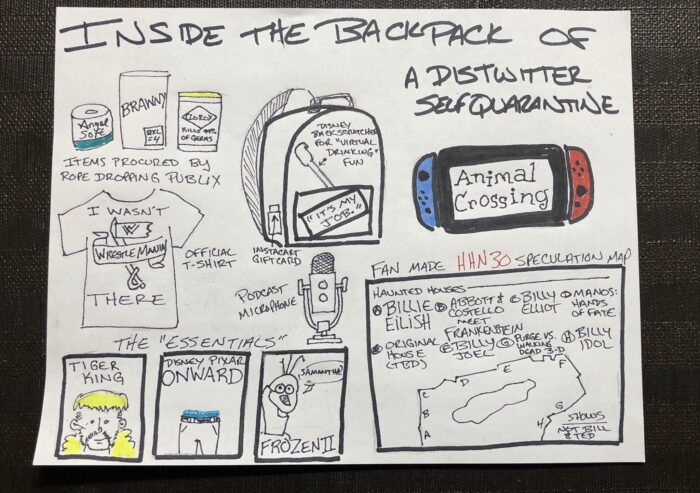 INSIDE THE BACKPACK OF
A DISTWITTER
SELF QUARANTINE
Angel
Soft
BRAWNY
8XL
=4
CLOROX
KILLS 99%
OF GERMS
ITEMS PROCURED BY
ROPE DROPPING PUBLIX
DISNEY
BACKSCRATCHER
FOR "VIRTUAL
DRINKING"
FUN
"IT'S MY
JOB."
INSTACART
GIFT CARD
Animal
Crossing
I WASN'T
WRESTLEMANIA
THERE
OFFICIAL
T-SHIRT
PODCAST
MICROPHONE
FAN MADE HHN30 SPECULATION MAP
HAUNTED HOUSES
A BILLIE
EILISH
B ABBOTT &
COSTELLO
MEET
FRANKENSTEIN
C BILLY
ELLIOT
D MANOS:
HANDS
OF FATE
ORIGINAL
HOUSE
(TBD)
F BILLY
JOEL
G PURGE VS.
WALKING
DEAD 3-D
H BILLY
IDOL
A
B
C
D
E
F
G
H
SHOWS
NOT BILL
& TED
THE "ESSENTIALS"
TIGER
KING
DISNEY PIXAR
ONWARD
SAMANTHA?
FROZEN II